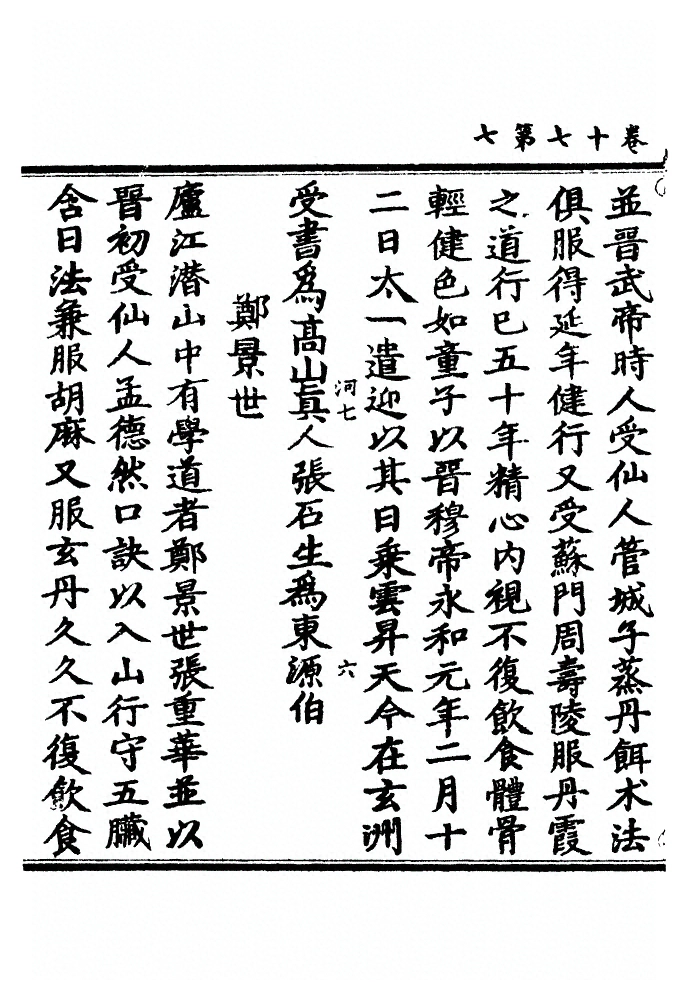 卷十七第七
並晉武帝時人受仙人管城子蒸丹餌术法
俱服得延年健行又受蘇門周壽陵服丹霞
之道行巳五十年精心內視不復飲食體骨
輕健色如童子以晉穆帝永和元年二月十
二日太一遣迎以其日乗雲昇天今在玄洲
受書爲高山眞人張石生爲東源伯
河七
六
鄭景世
廬江潜山中有學道者鄭景世張重華並以
晉初受仙人孟德然口訣以入山行守五臟
含日法兼服胡麻又服玄丹久久不復飲食